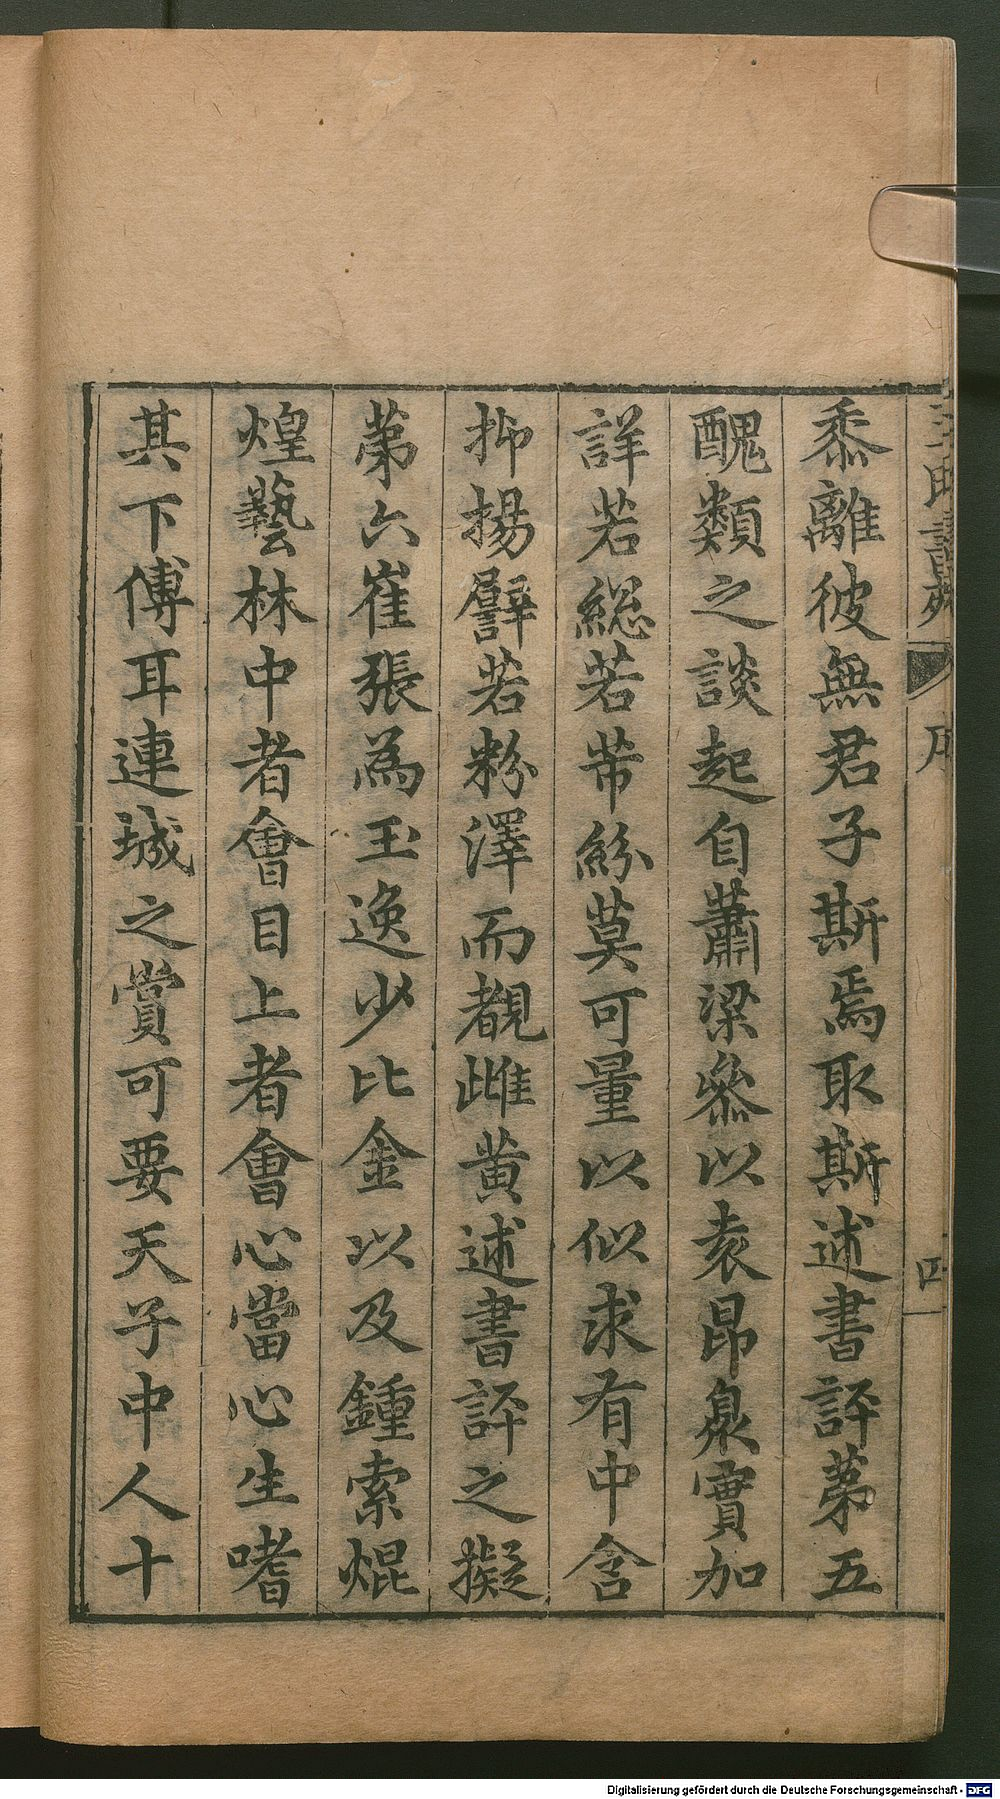 黍離彼無君子斯焉取斯述書評第五
醜類之談起自蕭梁叅以袁昂泉實加
詳若緫若芾紛莫可量以似求有中含
抑揚譬若粉澤而覩雌黄述書評之擬
第六崔張為玉逸少比金以及鍾索焜
煌藝林中者會目上者會心當心生嗜
其下傅耳連城之賞可要天子中人十
王氏書苑
序
四
Digitalisierung gefördert durch die Deutsche Forschungsgemeinschaft - DFG